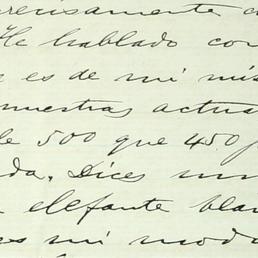 precisamente a
He hablado con
es de mi mis
nuestras actua
de 500 que 450 p
da. Dices un
elefante blan
es mi modo